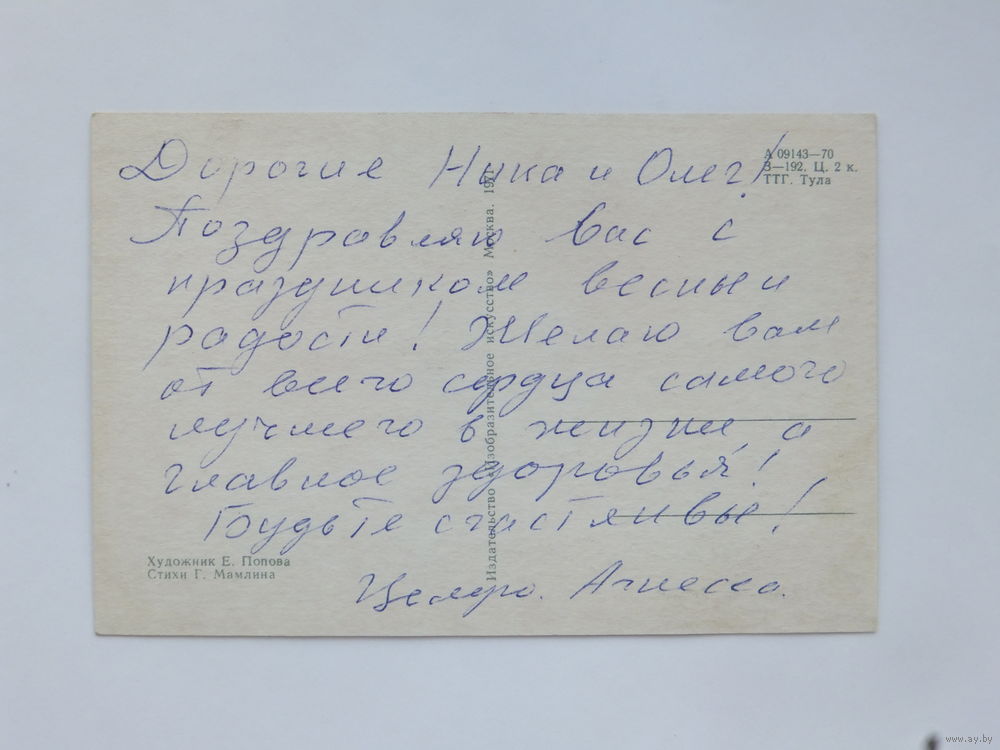 Дорогие Ника и Олег!
Поздравляю Вас с
праздником весны и
радости! Желаю вам
от всего сердца самого
лучшего в жизни, а
главное здоровья!
Будьте счастливы!
Целую. Агнесса.
А 09143—70
З—192. Ц. 2 к.
ТТГ. Тула
Издательство «Изобразительное искусство» Москва. 1971
Художник Е. Попова
Стихи Г. Мамлина
www.ay.by